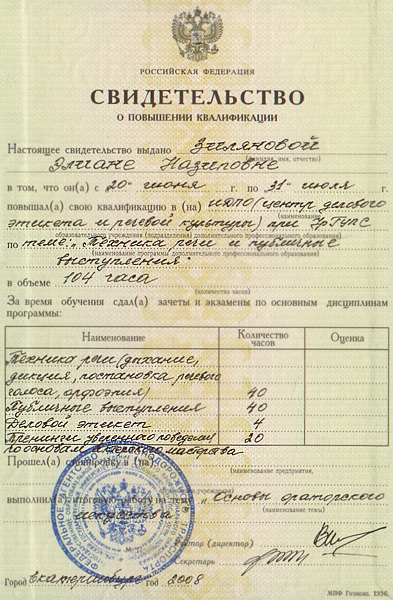 РОССИЙСКАЯ ФЕДЕРАЦИЯ
СВИДЕТЕЛЬСТВО
О ПОВЫШЕНИИ КВАЛИФИКАЦИИ
Настоящее свидетельство выдано Зиляновой
(фамилия, имя, отчество)
Элиане Назиповне
в том, что он(а) с „20“ июня г. по „31“ июля г.
повышал(а) свою квалификацию в (на) ИДПО (центр делового
(наименование
этикета и речевой культуры) при УрГУПС
образовательного учреждения (подразделения) дополнительного профессионального образования)
по теме: „Техника речи и публичные
(наименование программы дополнительного профессионального образования)
выступления“
в объеме 104 часа
(количество часов)
За время обучения сдал(а) зачеты и экзамены по основным дисциплинам
программы:
Наименование Количество часов Оценка
Техника речи (дыхание,
дикция, постановка речевого
голоса, орфоэпия) 40
Публичные выступления 40
Деловой этикет 4
Тренинги уверенного поведения 20
по основам актерского мастерства
Прошел(а) стажировку в (на)
(наименование предприятия,
выполнил(а) итоговую работу на тему „Основы ораторского
(наименование темы)
искусства“
Ректор (директор)
Секретарь
М.П.
Город Екатеринбург год 2008
МПФ Гознака. 1996.